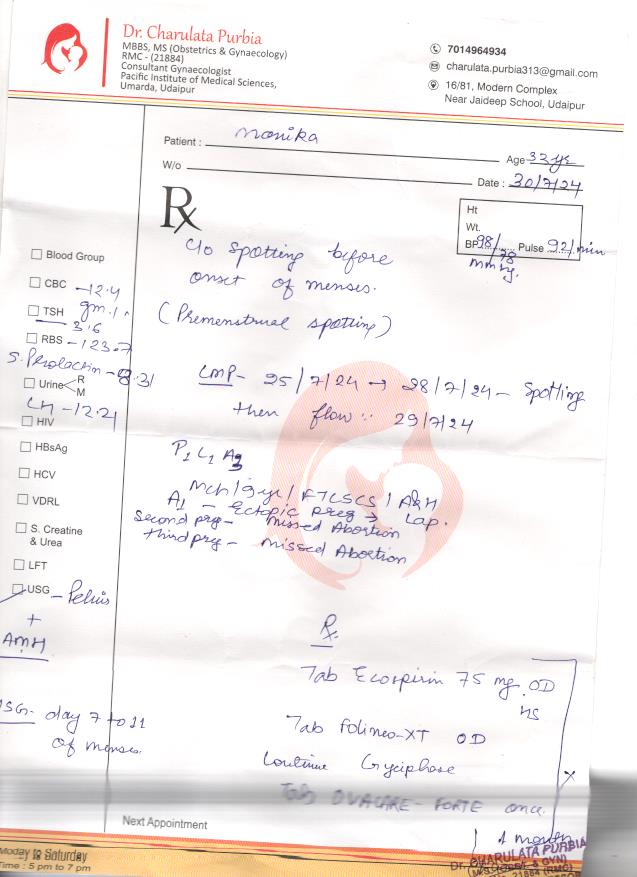 Dr. Charulata Purbia
MBBS, MS (Obstetrics & Gynaecology)
RMC - (21884)
Consultant Gynaecologist
Pacific Institute of Medical Sciences,
Umarda, Udaipur
7014964934
charulata.purbia313@gmail.com
16/81, Modern Complex
Near Jaideep School, Udaipur
Patient : Monika
Age 32 yr
W/o
Date : 30/7/24
Rx
Ht
Wt.
BP 98/78 mmHg. Pulse 92/min
C/o spotting before
onset of menses.
(Premenstrual spotting)
LMP- 25/7/24 → 28/7/24 - Spotting
then flow :: 29/7/24
P1 L1 A3
Mch/9yr/FTLSCS/A&H
A1 - Ectopic preg → Lap.
Second preg - Missed Abortion
third preg - missed Abortion
Blood Group
CBC - 12.4 gm%
TSH 3.6
RBS - 123.7
S. Prolactin - 8.31
Urine R M
LH - 12.21
HIV
HBsAg
HCV
VDRL
S. Creatine
& Urea
LFT
USG - Pelvis
+
AMH
day 7 to 11
of menses.
Rx
Tab Ecosprin 75 mg OD
HS
Tab Folineo-XT OD
Continue Glyciphase
Tab OVACARE-FORTE once
x
1 month
Next Appointment
Moday to Saturday
Time : 5 pm to 7 pm
Dr. CHARULATA PURBIA
21884 (RMC)